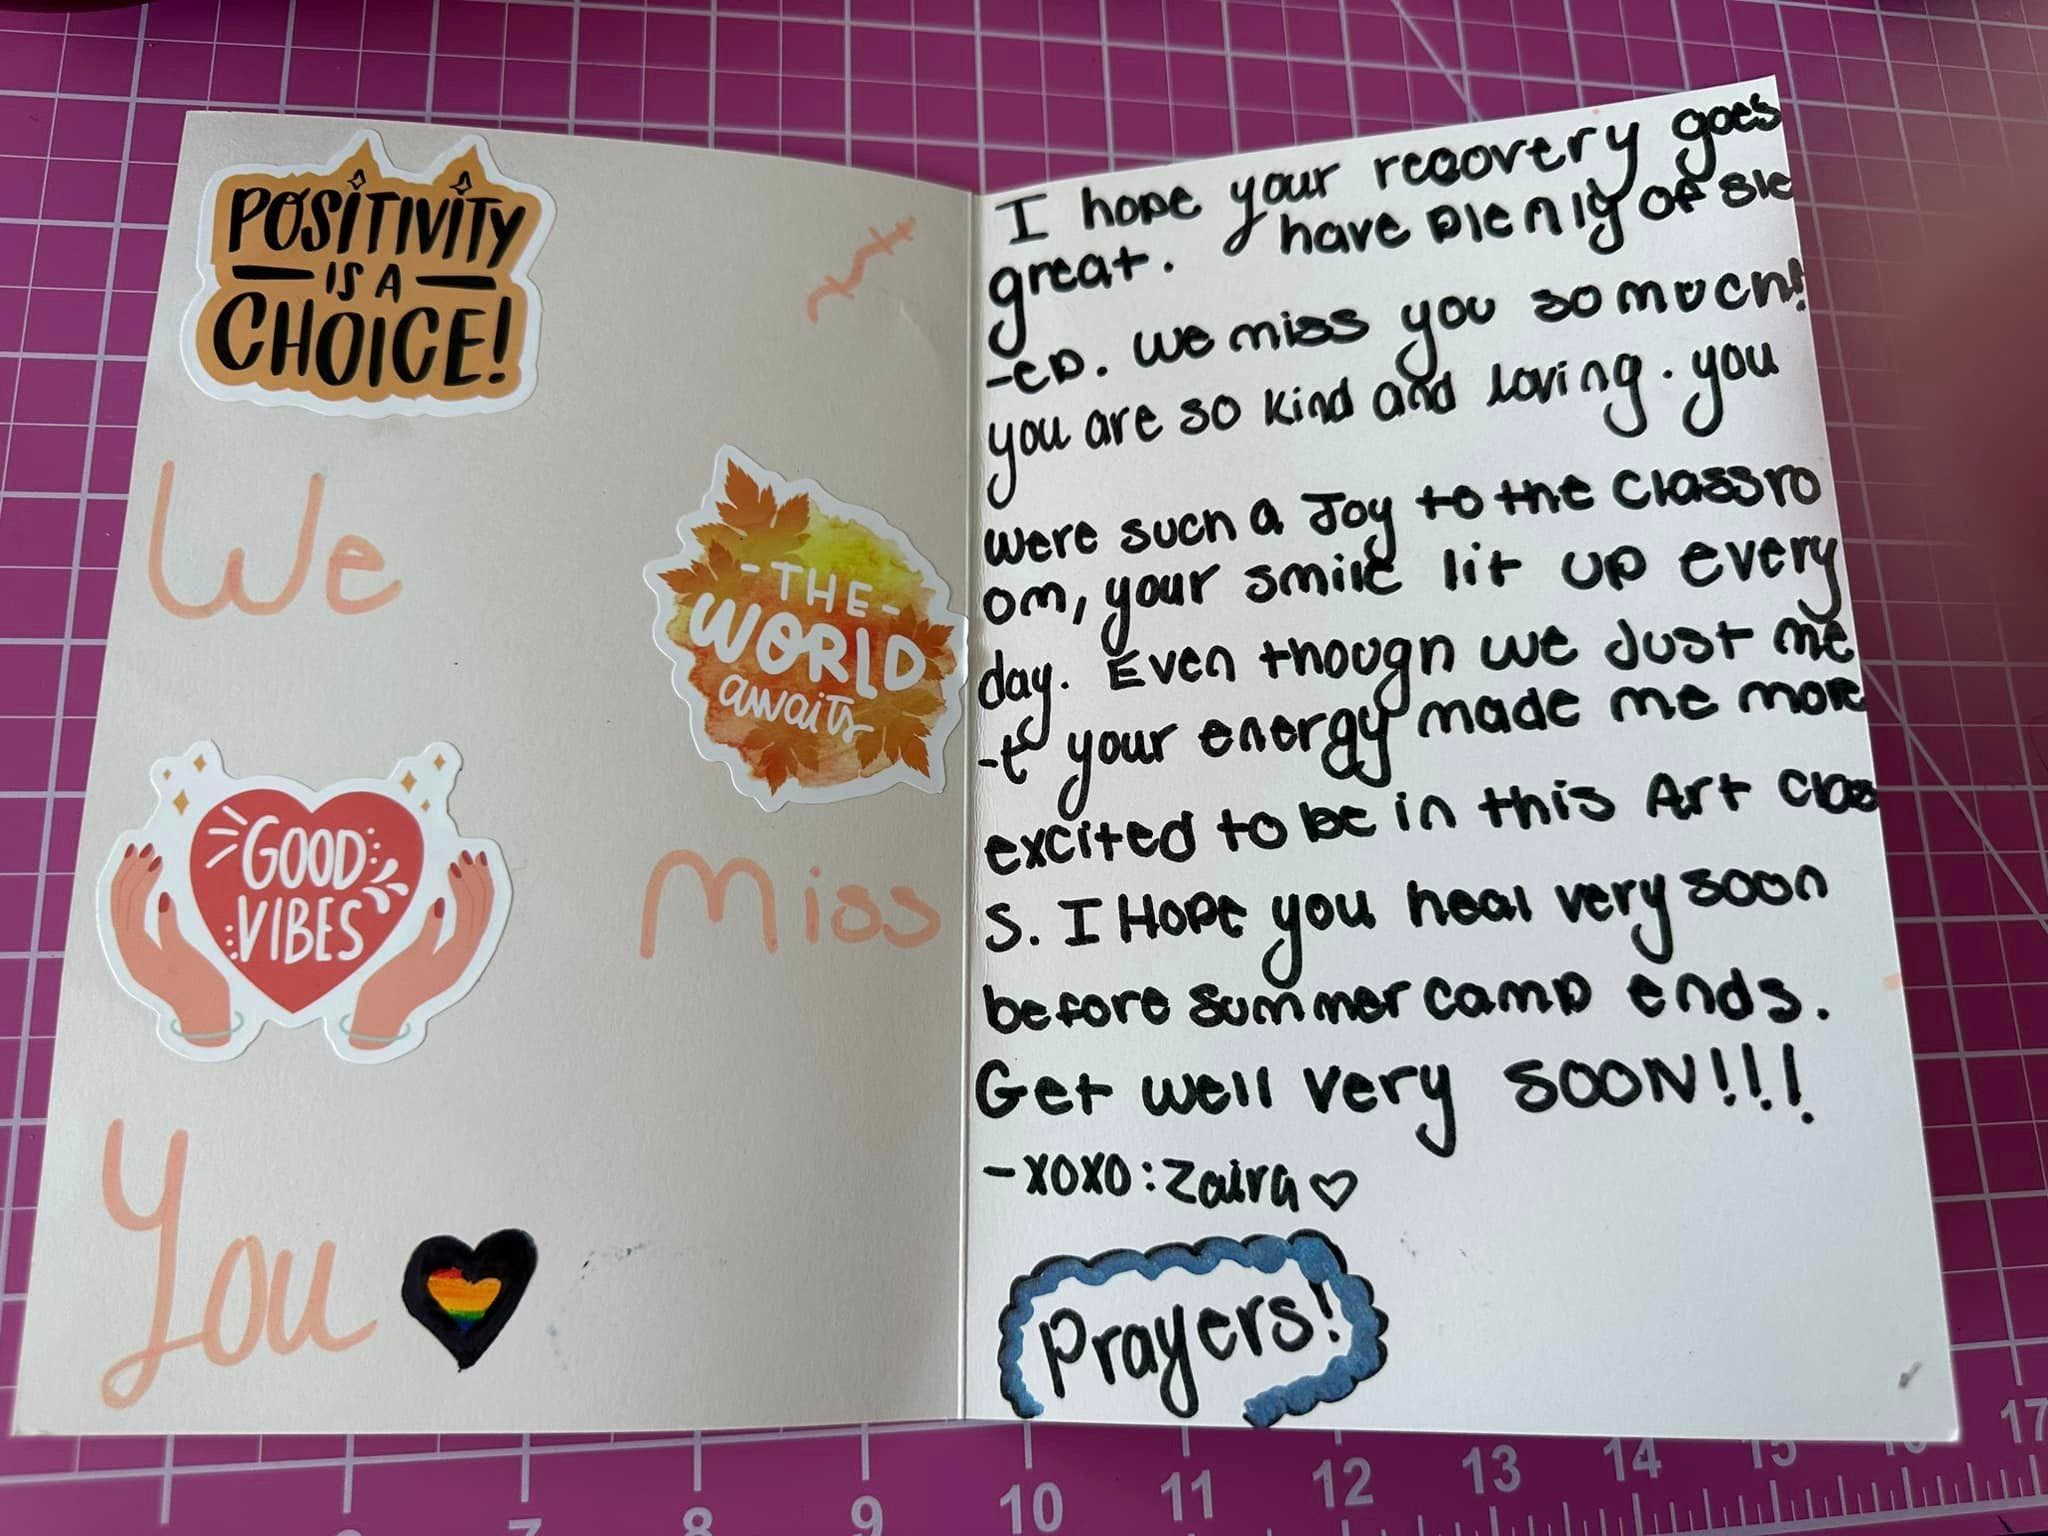 POSITIVITY
IS A
CHOICE!
We
-THE-
WORLD
awaits
GOOD
VIBES
Miss
You
I hope your recovery goes
great. have plenty of sle
-ep. We miss you so much!
you are so kind and loving. you
were such a Joy to the classro
om, your smile lit up every
day. Even though we Just me
-t your energy made me more
excited to be in this Art clas
s. I Hope you heal very soon
before summer camp ends.
Get well very SOON!!!
-XOXO: Zaira ♡
Prayers!
7
8
9
10
11
12
13
14
15
16
17